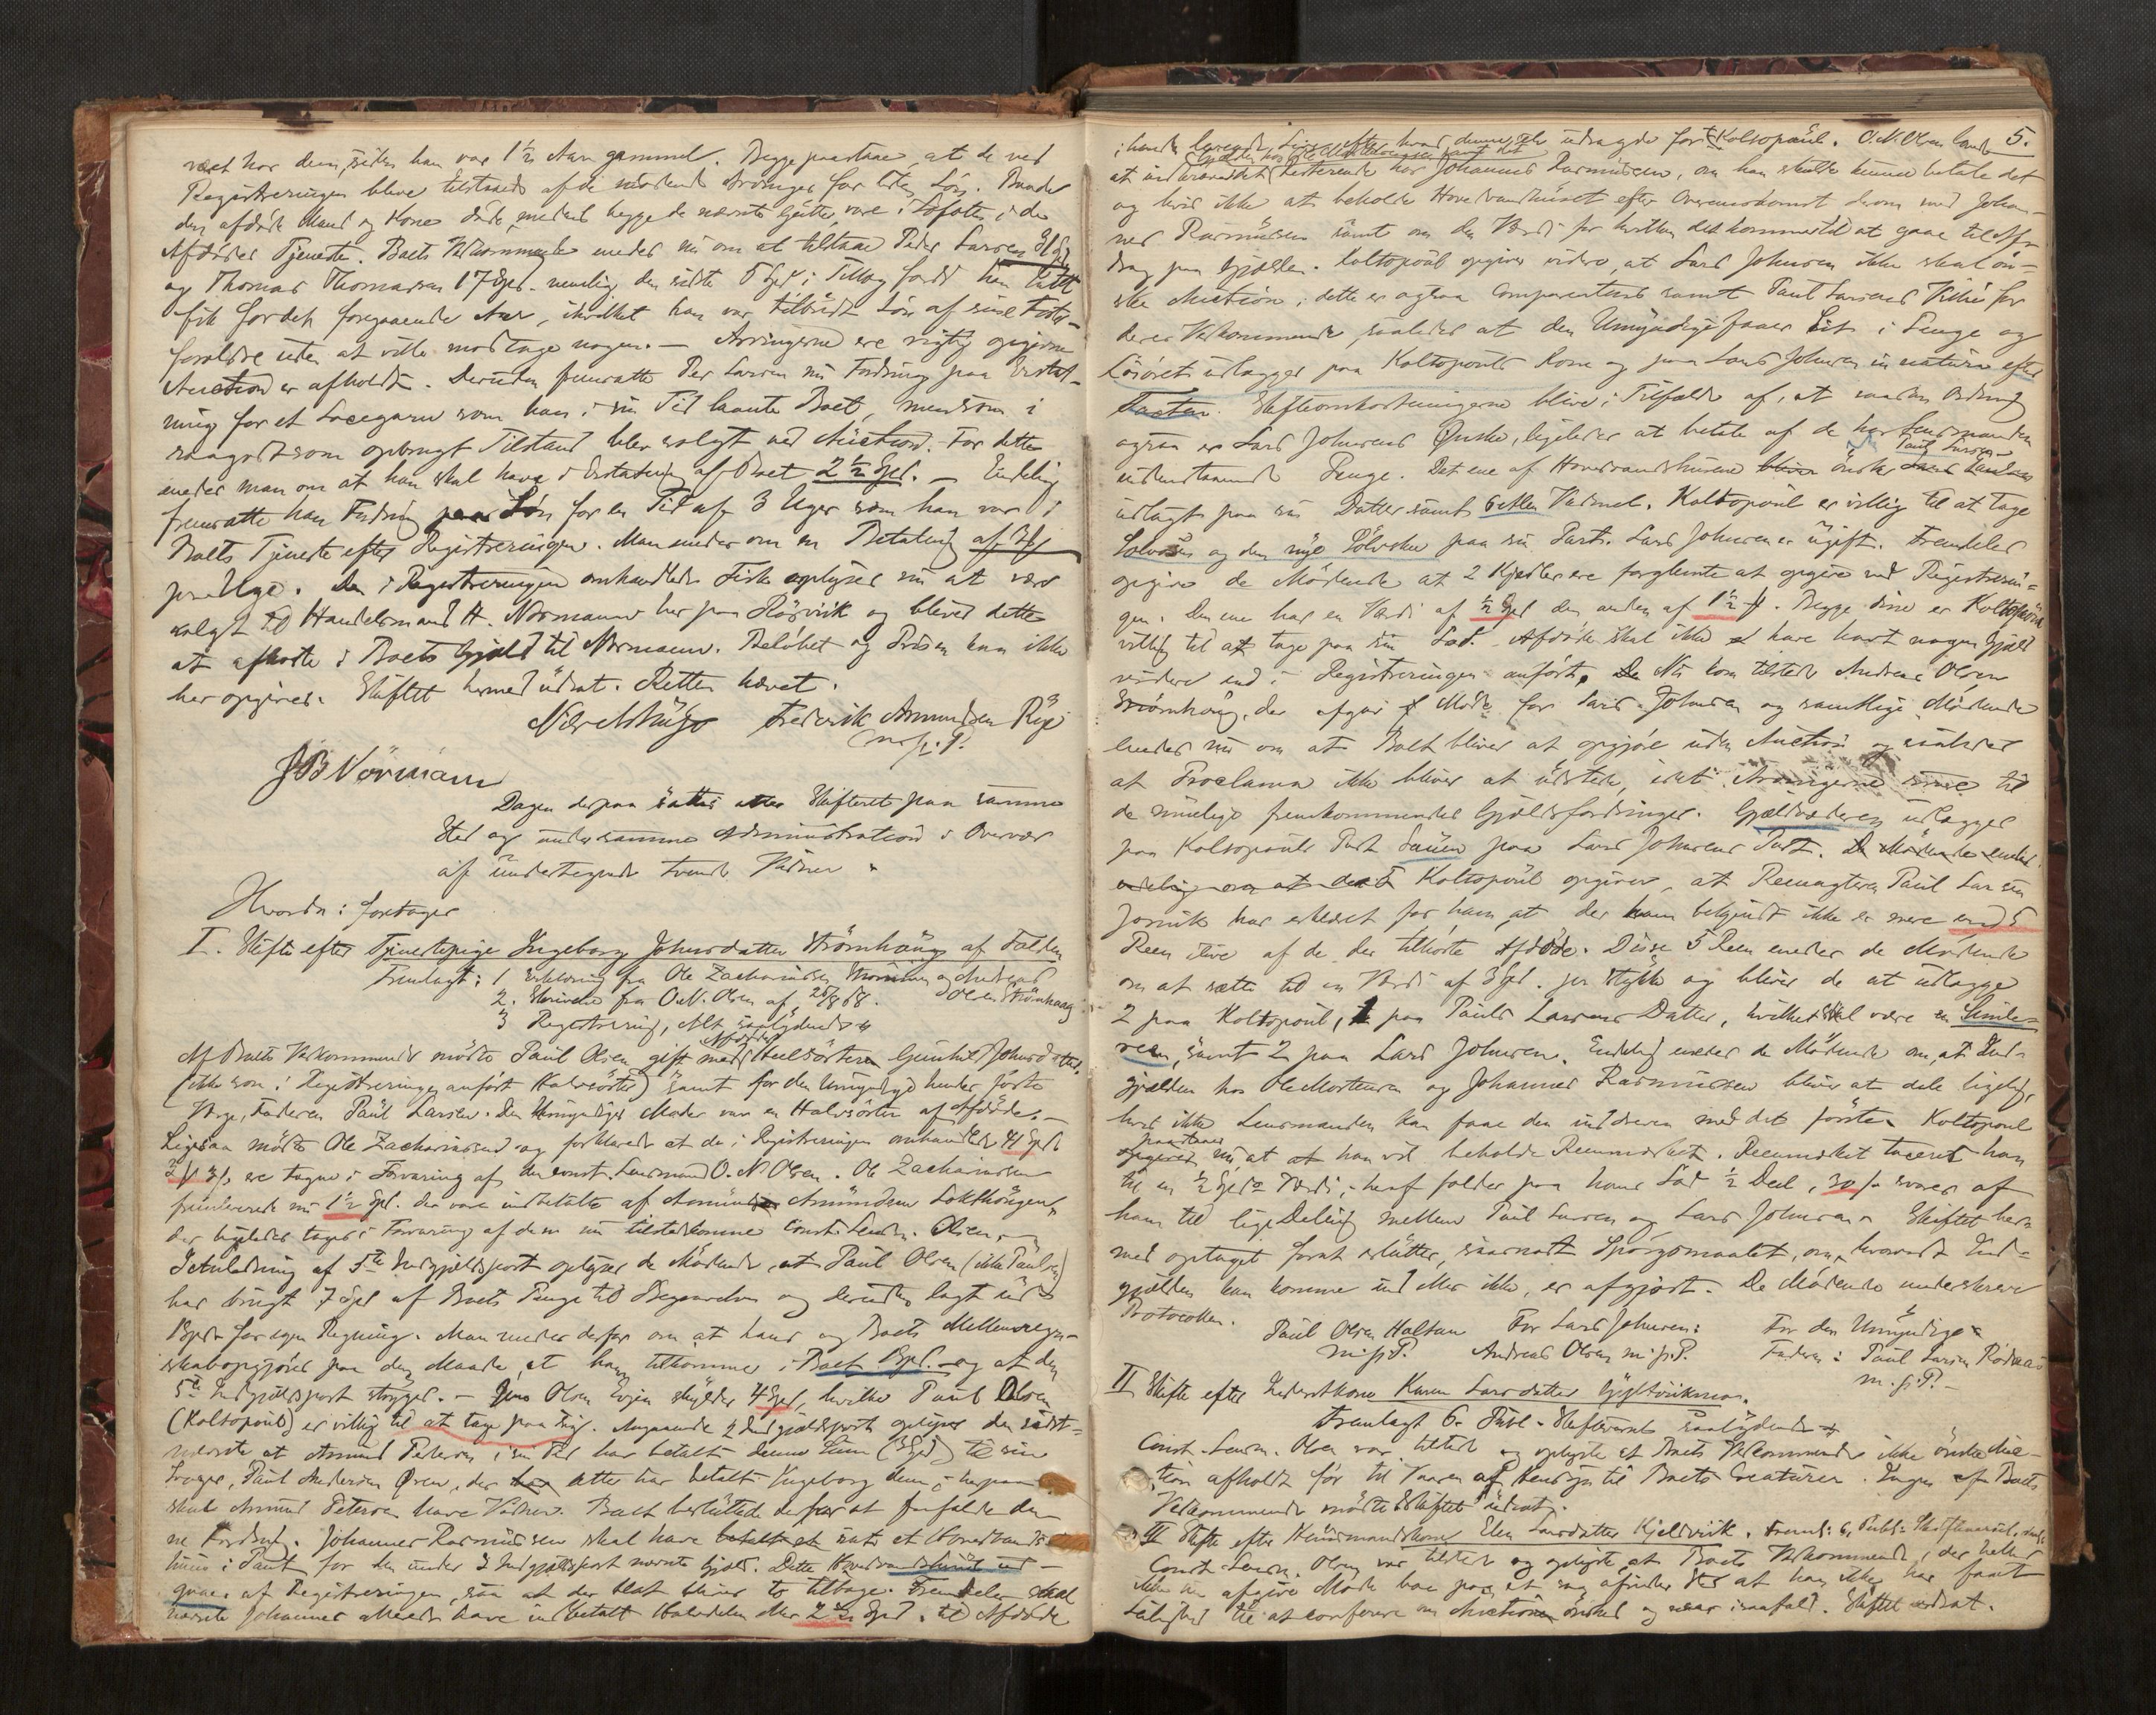 været hos dem, siden han var 1½ Aar gammel. Begge paastaae, at de ved
Registreringen bleve tilstaaede af de Arvinger for liden Løn. Baade
den afdøde Mand og Kone døde, medens begge de nævnte Gutter vare i Lofoten i de
Afdødes Tjeneste. Boets Vedkommende enedes nu om at tilstaae Peder Larsen
og Thomas Thomassen 17 Spd. nemlig den sidste 5 Spd i Tillæg fordi han Intet
fik for det foregaaende Aar, i hvilket han var tilbudt Løn af sine Foster-
forældre uden at ville modtage nogen. — Arvingerne ere rigtig opgivne
Auction er afholdt. Desuden fremsatte Per Larsen nu Fordring paa Erstat-
ning for et som han i sin Tid laante Boet, men som i
saagodtsom opbrugt Tilstand blev solgt ved Auction. For dette
enedes man om at han skal have i Erstatning af Boet 2½ Spd. — Endelig
fremsatte han Fordring paa Løn for en Tid af 3 Uger som han var i
Boets Tjeneste efter Registreringen. Man enedes om en Betaling af
pr. Uge. Den i Registreringen omhandlede Fisk oplyses nu at være
solgt til Handelsmand H. Normann her paa Rørvik og bliver dette
at afkorte i Boets Gjæld til Normann. Beløbet og Prisen kan ikke
her opgives. Skiftet hermed udsat. Retten hævet.
Frederik Amundsen
m. p. P.
JB Normann
Dagen derpaa sattes atter Skifteret paa samme
Sted og under samme Administration i Overvær
af undertegnede tvende Vidner
Hvorda: foretages
I. Skifte efter Tjenestepige Ingeborg Johnsdatter Strömhaug af Folden
Fremlagt: 1 Erklæring fra Ole Zachariassen Strømmen og Andreas
Olsen Strömhaug
2. Skrivelse fra O. N. Olsen af
3 Registrering, Alt saalydende
Af Boets Vedkommende mødte Paul Olsen gift med Afdødes Helsøster Gunhild Johnsdatter,
(ikke som i Registreringen anført Halvsøster) samt for den Umyndige hendes første
Værge, Faderen Paul Larsen. Den Umyndiges Moder var en Halvsøster af Afdøde. —
Ligesaa mødte Ole Zachariassen og forklarede at de i Registreringen omhandlede 41 Spd
ere tagne i Forvaring af den const. Lensmand O. N. Olsen. Ole Zachariassen
fremleverede nu 1½ Spd. der vare indbetalte af Amundsen
der ligeledes toges i Forvaring af den nu tilstedkomne const. Lensm. Olsen.
I Anledning af 5te Indgjældspost oplyser de Mødende, at Paul Olsen (ikke Paulsen)
har brugt 7 Spd af Boets Penge til Begravelsen og desuden lagt ud
for egen Regning. Man enedes derfor om at hans og Boets Mellemregn-
skab opgjøres paa den Maade, at han tilkommer i Boet og at den
5te Indgjældspost stryges. — Olsen skylder 4 Spd, hvilke Paul Olsen
(Koltopaul) er villig til at tage paa sig. Angaaende 2 Indgjældspost oplyses den sidst-
nævnte at Amund Pedersen i sin Tid har betalt denne Sum til sin
Svoger, Paul Andersen Øren, der atter har betalt Ingeborg dem; herpaa
skal Amund Petersen have Vidner. Boet besluttede derfor at frafalde den-
ne Fordring. Johannes Rasmussen skal have sat et Hovedvands-
huus i Pant for den under 3 Indgjældspost nævnte Gjæld. Dette Hovedvandshuus ud-
gaaer af Registreringen, saa at det Skal blive to tilbage. Fremdeles skal
nævnte Johannes allerede have indbetalt Halvdelen eller 2½ Spd. til Afdøde
5.
i hendes levende Live, efter hvad denne selv udsagde for Koltopaul. O. N. Olsen lovede
at inddrive det Resterende hos Johannes Rasmussen, om han skulde kunne betale det
og hvis ikke at beholde Hovedvandshuset efter Overenskomst derom med Johan-
nes Rasmussen samt om den Værdi for hvilken det kommer til at gaae til Af-
drag paa Gjælden. Koltopaul opgiver videre, at Lars Johnsen ikke skal øn-
ske Auction; dette er ogsaa Comparentens samt Paul Larsens Villie for
deres Vedkommende, saaledes at den Umyndige faaer Sit i Penge og
Løsøret udlægges paa Koltopauls Kone og paa Lars Johnsen in natura efter
Taxten. Skifteomkostningerne blive i Tilfælde af, at saadan Ordning
ogsaa er Lars Johnsens Ønske, ligeledes at betale af de hos Lensmanden
indestaaende Penge. Det ene af Hovedvandshusene ønsker Paul Larsen
udlagt paa sin Datter samt 6 Allen Vadmel. Koltopaul er villig til at tage
Sølvdaasen og den nye Sølvske paa sin Part. Lars Johnsen er ugift. Fremdeles
opgive de Mødende at 2 Kjedler ere forglemte at opgive ved Registrerin-
gen. Den ene har en Værdi af ½ Spd den anden af 1½. Begge disse er Koltopaul
villig til at tage paa sin Lod. Afdøde skal ikke have havt nogen Gjæld
videre end i Registreringen anført. Nu kom tilstede Andreas Olsen
Strömhaug, der afgav Møde for Lars Johnsen og samtlige Mødende
enedes nu om at Boet bliver at opgjøre uden Auction og saaledes
at Proclama ikke bliver at udstede, idet Arvingerne svare til
de muligt fremkommende Gjældsfordringer. Gjældvæderen udlægges
paa Koltopauls Part Sauen paa Lars Johnsens Part. De Mødende enedes
endelig om at Koltopaul opgiver, at Reenvogteren Paul Larsen
har erklæret for ham, at der ham bekjendt ikke er mere end 5
Reen ilive af de der tilhørte Afdøde. Disse 5 Reen enedes de Mødende
om at sætte til en Værdi af 3 Spd. pr Stykke og blive de at udlægge
2 paa Koltopaul, 1 paa Pauls Larsens Datter, hvilket skal være en Simle-
reen, samt 2 paa Lars Johnsen. Endelig enedes de Mødende om, at Ind-
gjælden hos Ole Mortensen og Johannes Rasmussen bliver at dele ligelig,
hvis ikke Lensmanden kan faae den inddreven med det første. Koltopaul
paastaaer nu, at han vil beholde Reenmærket. Reenmærket taxeret han
til en ½ Spds Værdi; heraf falder paa hans Lod ½ Deel, 30 ß svares af
ham til lige Deling mellem Paul Larsen og Lars Johnsen. Skiftet her-
med optaget forat sluttes, saasnart Spørgsmaalet, om hvorvidt Ind-
gjælden kan komme ind eller ikke, er afgjort. De Mødende underskreve
Protocollen.
Paul Olsen Haltan
m. p. P.
For Lars Johnsen:
Andreas Olsen m. p. P.
For den Umyndige
Faderen: Paul Larsen
m. p. P. —
II Skifte efter Inderstkone Karen Larsdatter
Fremlagt 6. Publ. Skiftevæsens saalydende
Const. Lensm. Olsen var tilstede og oplyste at Boets Vedkommende ikke ønske Auc-
tion afholdt før til Vaaren af Hensyn til Boets Creaturer. Ingen af Boets
Vedkommende mødte Skiftet udsat.
III Skifte efter Huusmandskone Elen Larsdatter Kjeldvik.
Const. Lensm. Olsen var tilstede og oplyste, at Boets Vedkommende, der heller
ikke nu afgive Møde boe paa et saa afsides Sted at han ikke har faaet
Leilighed til at conferere om Auction ønskes og naar isaafald. Skiftet udsat.